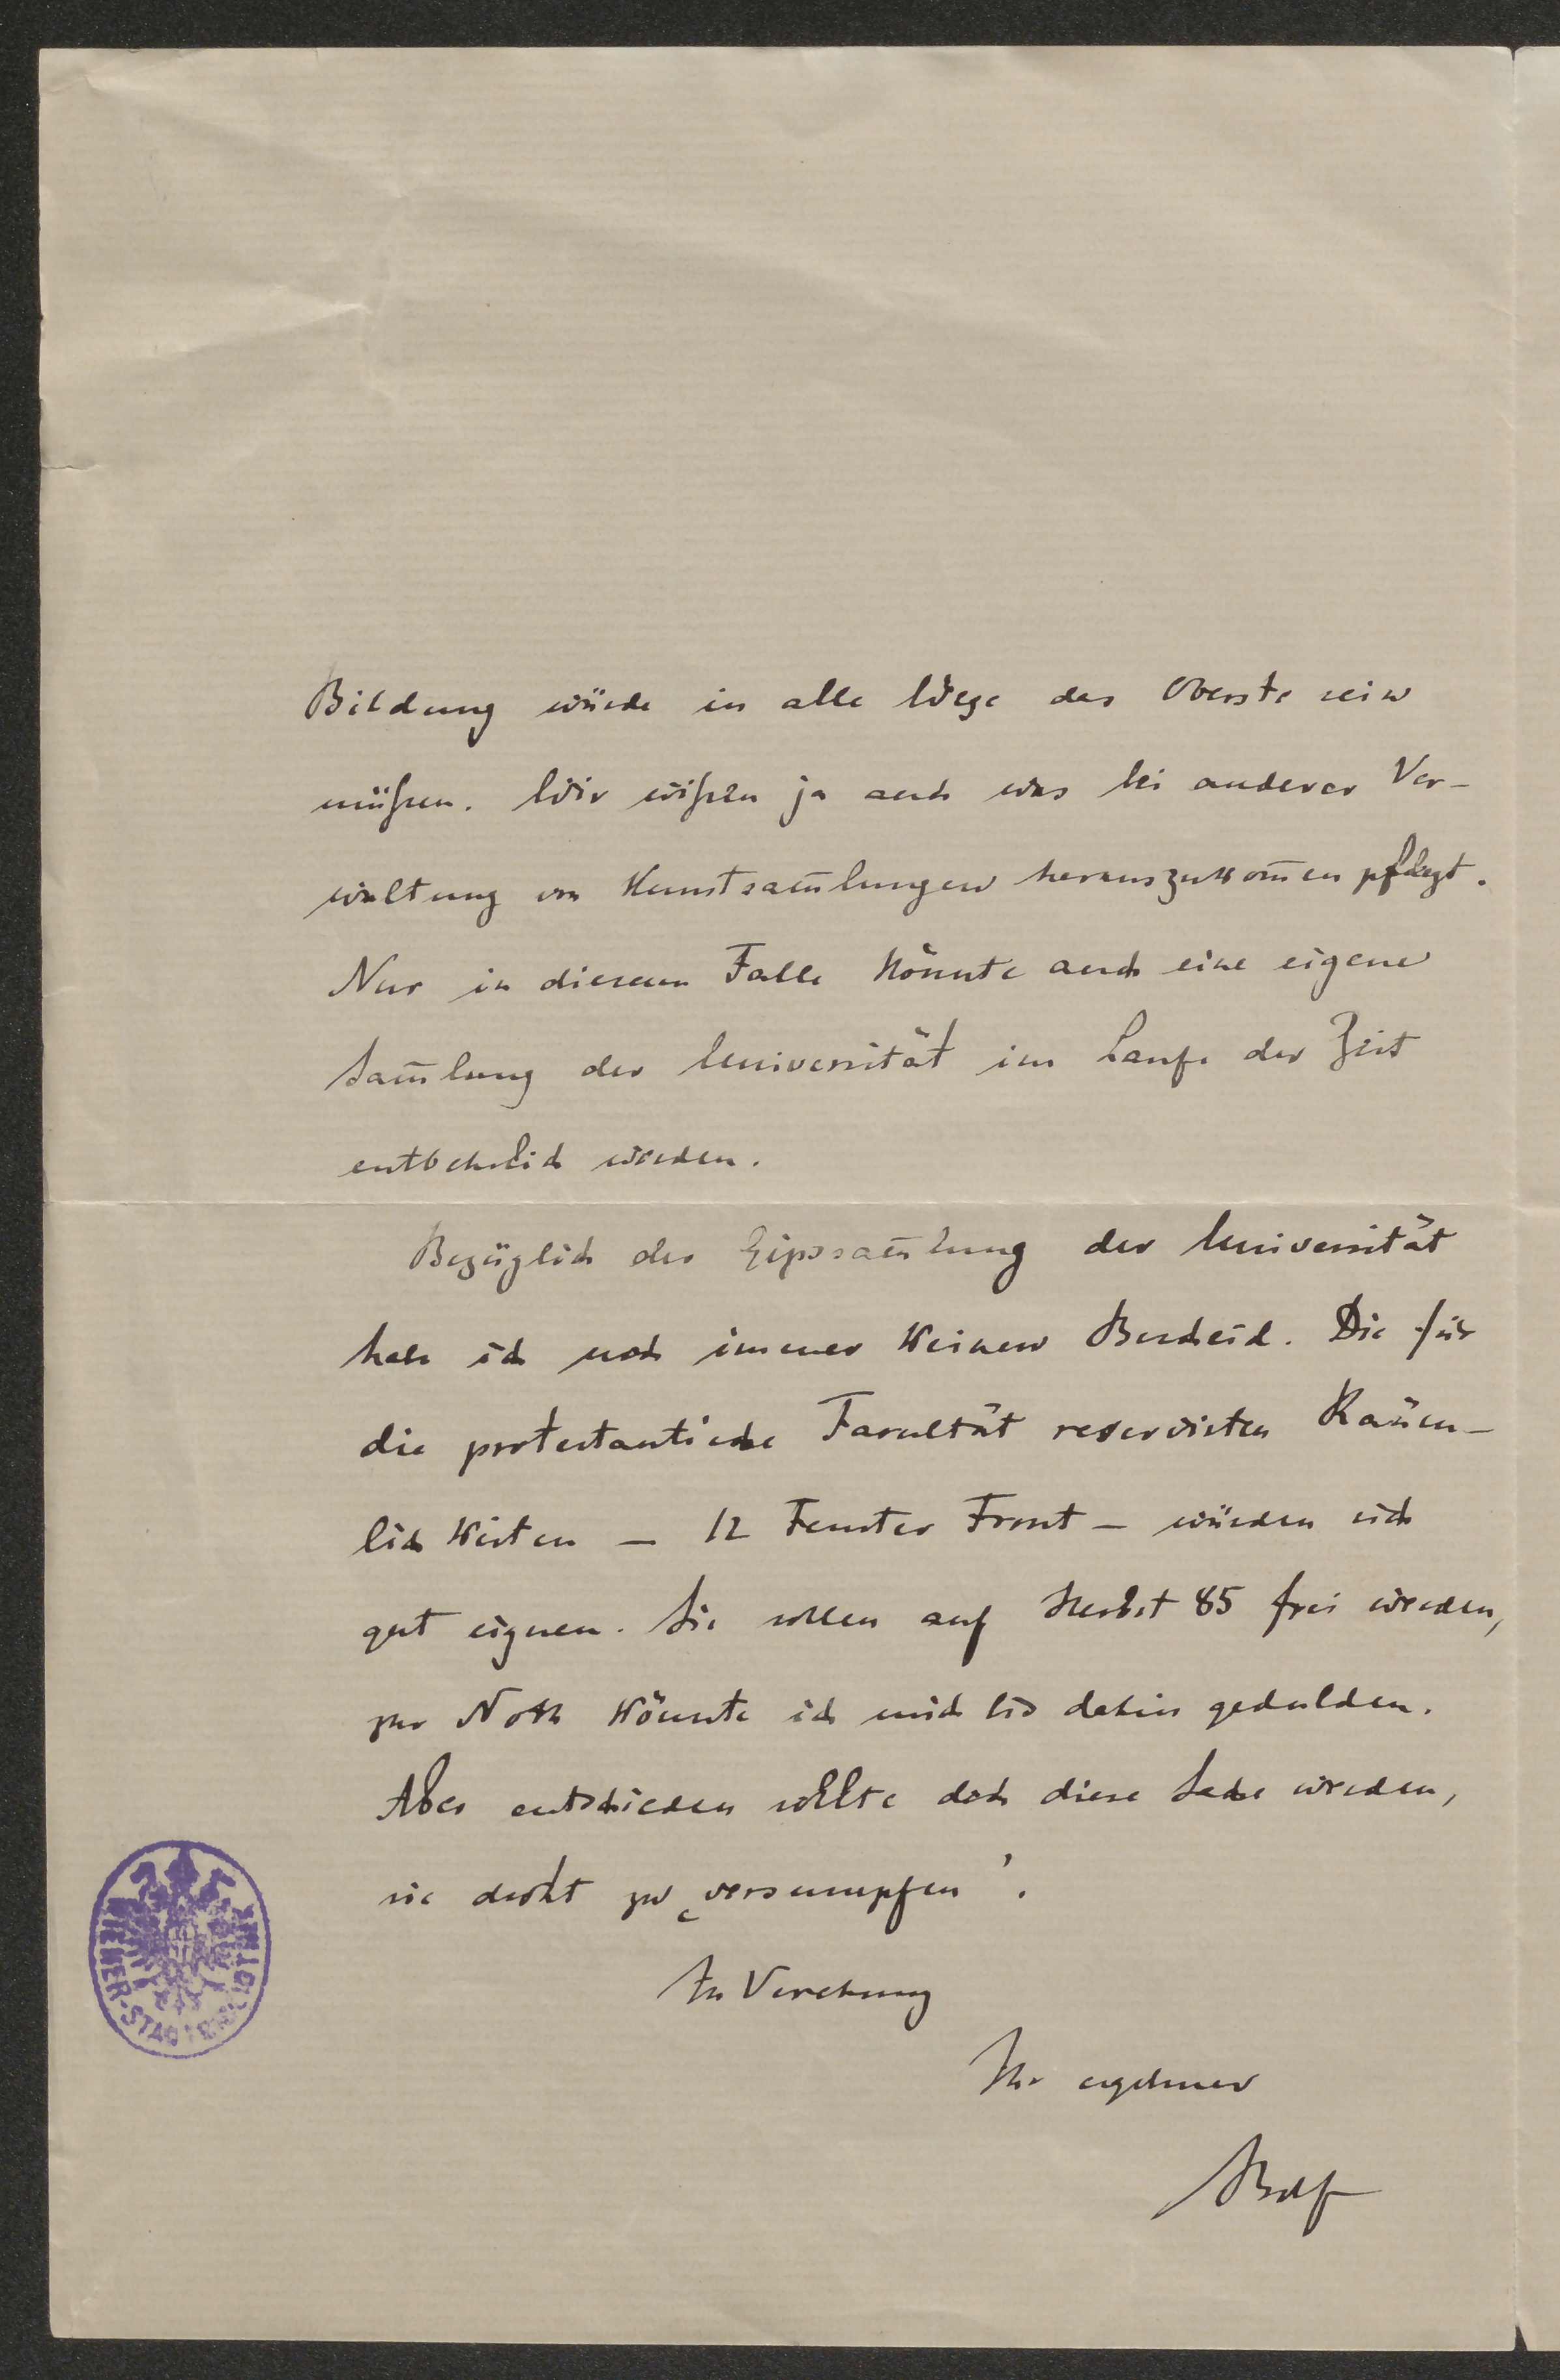 Bildung würde in alle Wege das Oberste sein
müßen. Wir wißen ja auch was bei anderer Ver-
waltung von Kunstsam̄lungen herauszukom̄en pflegt.
Nur in diesem Falle könnte auch eine eigene
Sam̄lung der Universität im Laufe der Zeit
entbehrlich werden.
Bezüglich der Gipssam̄lung der Universität
habe ich noch immer keinen Bescheid. Die für
die protestantische Facultät reservirten Räum-
lichkeiten – 12 Fenster Front – würden sich
gut eignen. Sie sollen auf Herbst 85 frei werden,
zur Noth könnte ich mich bis dahin gedulden.
Aber entschieden sollte doch diese Sache werden,
sie droht zu „versumpfen‟.
In Verehrung
Ihr ergebener
WIENER-STADTBIBLIOTHEK